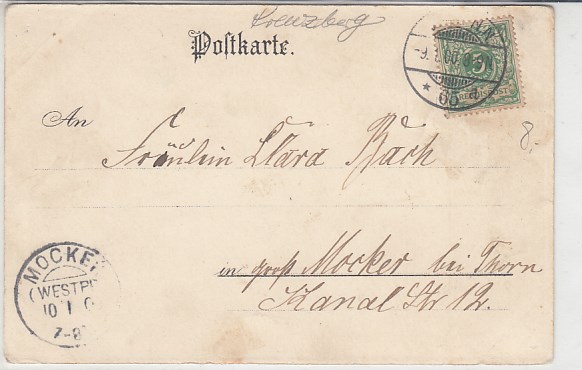 Kreuzberg
Postkarte.
-9.1.00.
* 68 a
5
REICHSPOST
An
Fräulein Clara Bach
8.
in groß Mocker bei Thorn
Kanal Str 12.
MOCKER
(WESTPR
10 1 0
7-8